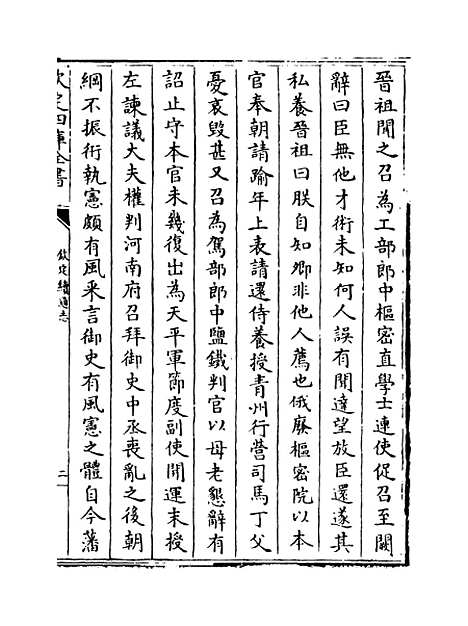 晉祖聞之召為工部郎中樞密直學士連使促召至闕
辭曰臣無他才術未知何人誤有聞達望放臣還遂其
私養晉祖曰朕自知卿非他人薦也俄廢樞密院以本
官奉朝請踰年上表請還侍養授青州行營司馬丁父
憂哀毀甚又召為駕部郎中鹽鐵判官以母老懇辭有
詔止守本官未幾復出為天平軍節度副使開運末授
左諫議大夫權判河南府召拜御史中丞喪亂之後朝
綱不振術執憲頗有風采言御史有風憲之體自今藩
欽定四庫全書
欽定續通志
二